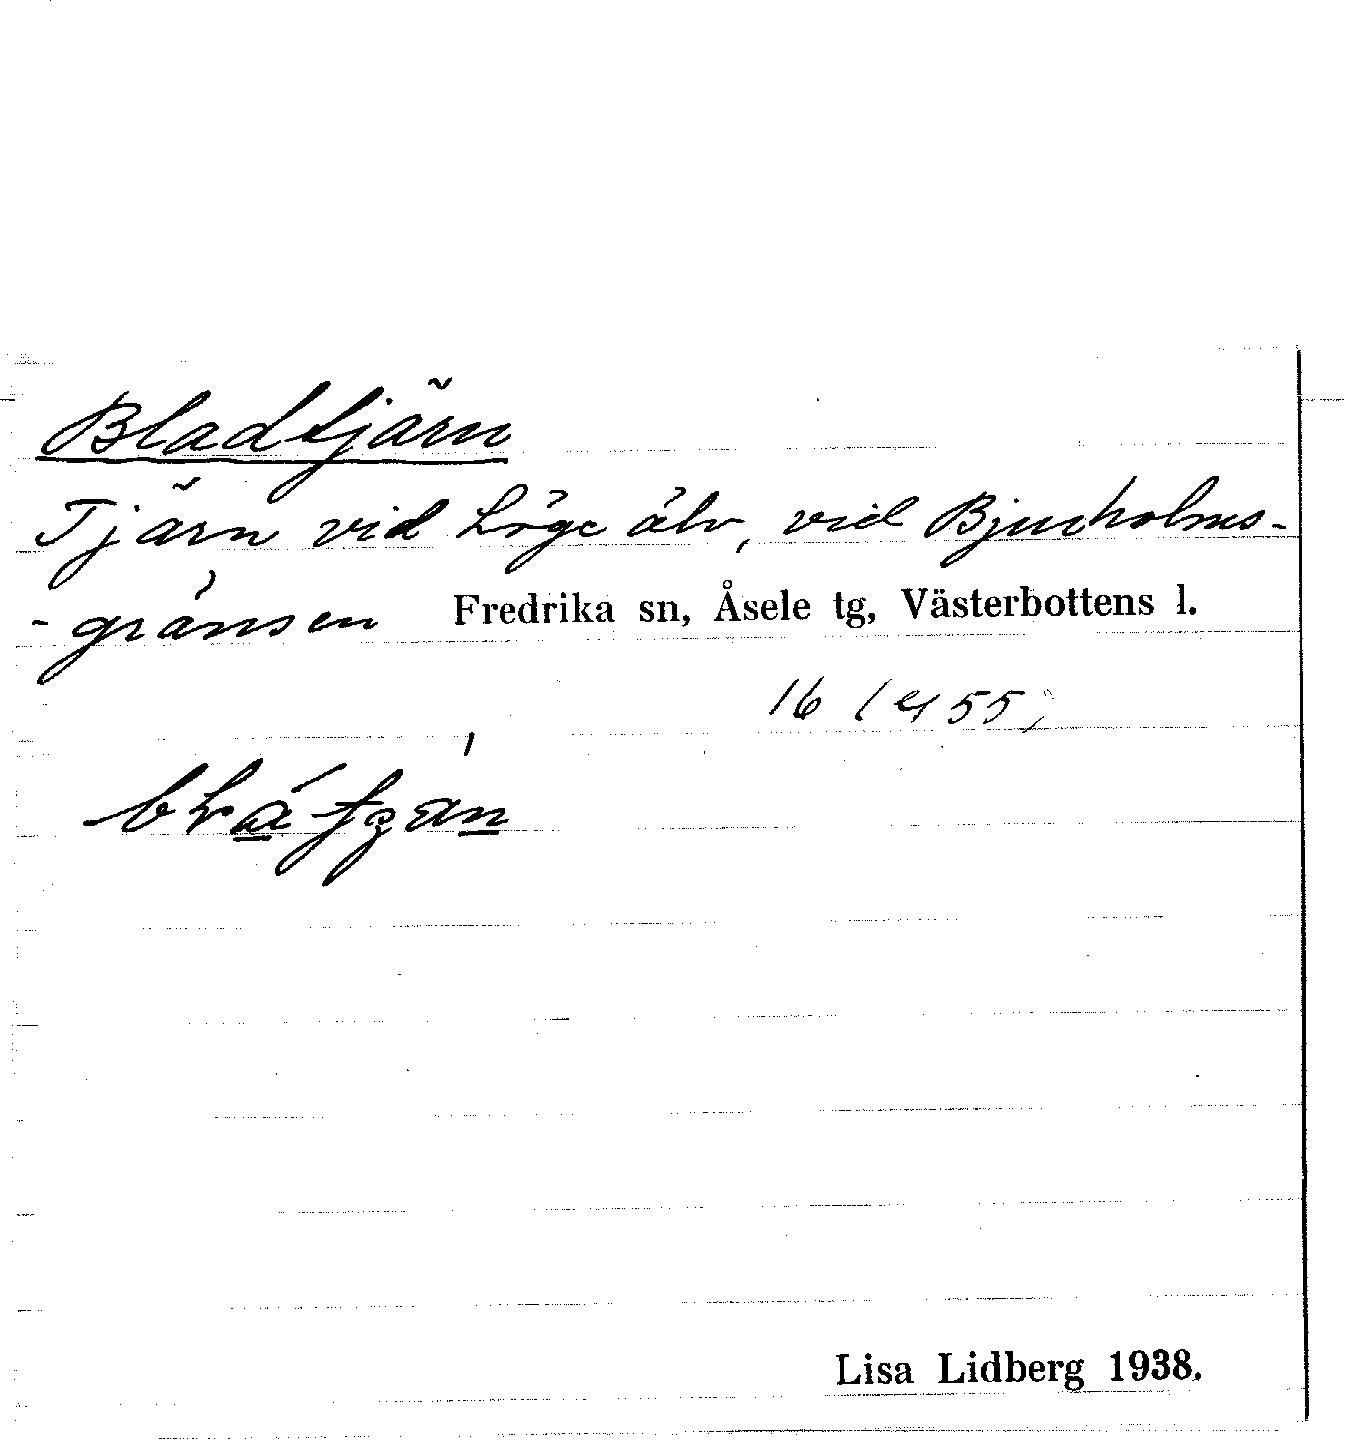 Bladtjärn
Tjärn vid Löge älv, vid Bjurholms-
-gränsen Fredrika sn, Åsele tg, Västerbottens l.
16
Lisa Lidberg 1938.